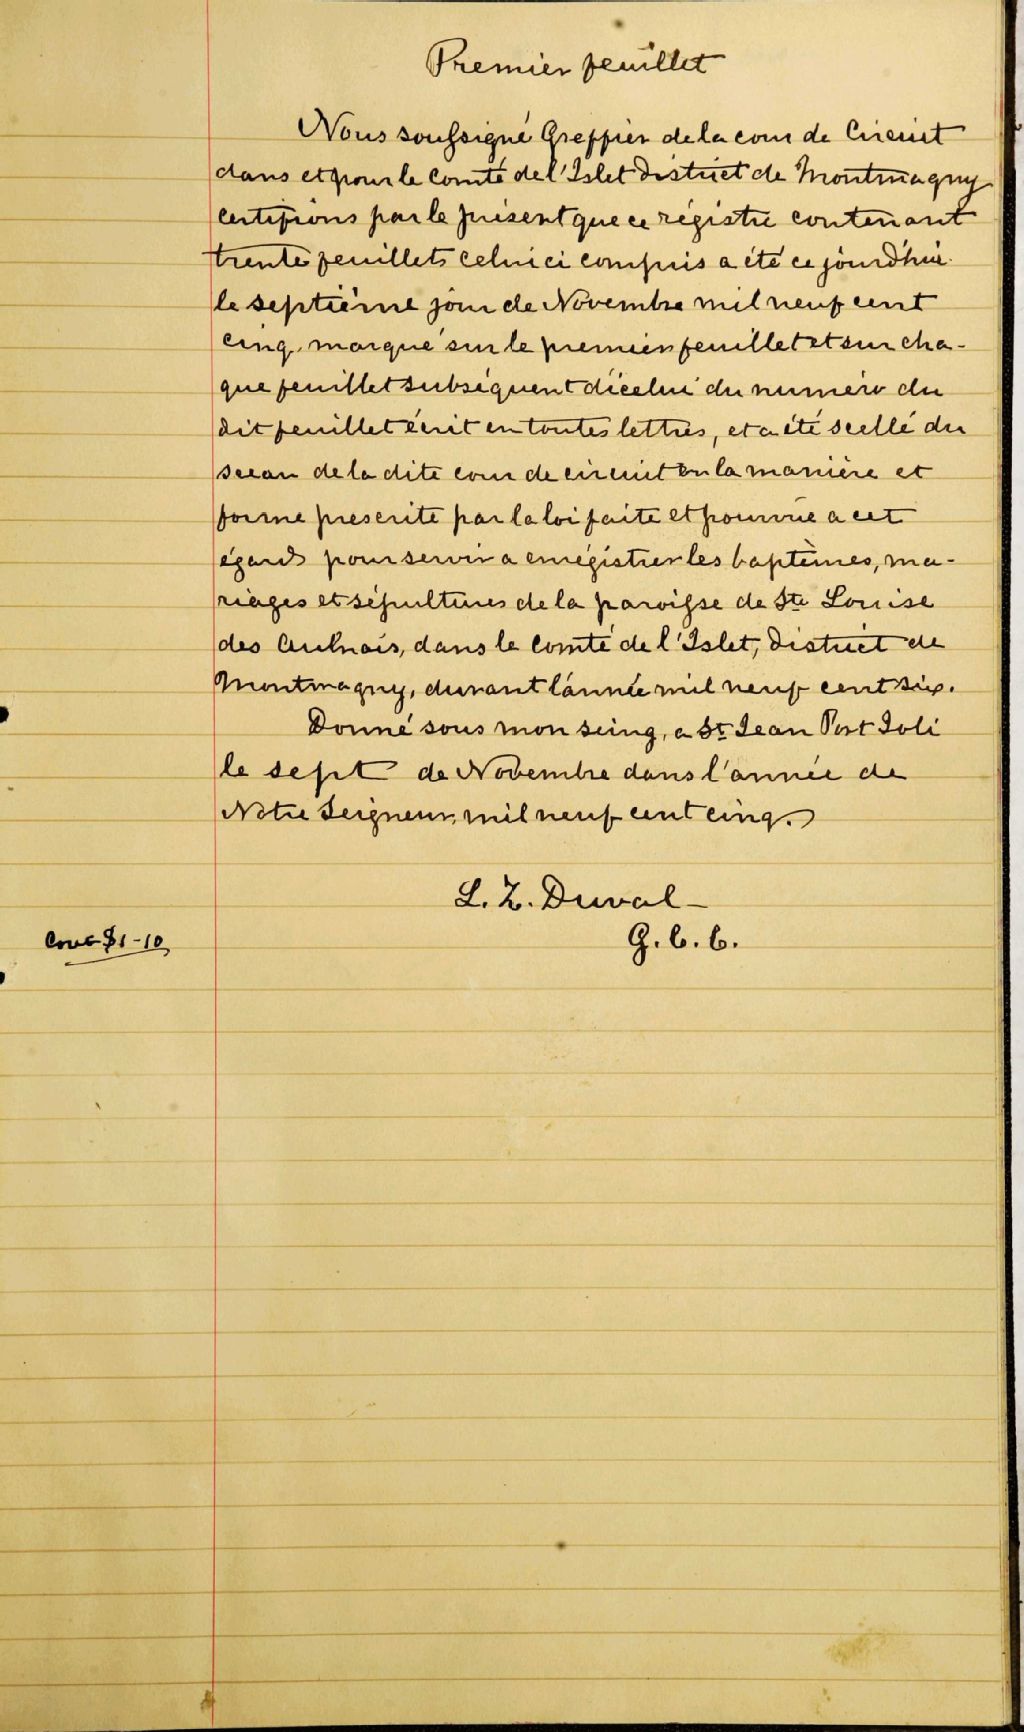 Premier feuillet
Nous soussigné Greffier de la cour de Circuit
dans et pour le Comté de l'Islet District de Montmagny
certifions par le présent que ce régistre contenant
trente feuillets celui ci compris a été ce jourd'hui
le septième jour de Novembre mil neuf cent
cinq, marqué sur le premier feuillet et sur cha-
que feuillet subséquent d'icelui du numéro du
dit feuillet écrit en toutes lettres, et a été scellé du
sceau de la dite cour de circuit en la manière et
forme prescrite par la loi faite et pourvue a cet
égard pour servir a enrégistrer les baptèmes, ma-
riages et sépultures de la paroisse de Ste Louise
des Aulnais, dans le Comté de l'Islet, District de
Montmagny, durant l'année mil neuf cent six.
Donné sous mon seing, a St Jean Port Joli
le sept de Novembre dans l'année de
Notre Seigneur mil neuf cent cinq.
L. Z. Duval
G. C. C.
$1-10